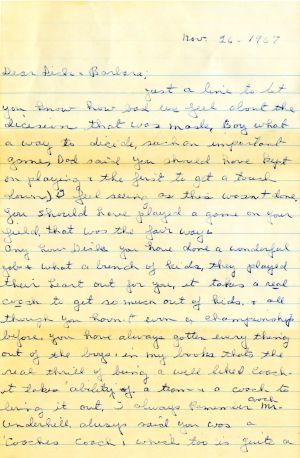 Nov. 26 - 1967
Dear Dick & Barbara;
just a line to let
you know how sad we feel about the
dicision that was made, Boy what
a way to decide, such an important
game, Dad said you should have kept
on playing & the first to get a touch
down,) I feel seeing as this wasn't done,
you should have played a game on your
field, that was the fair way.
Any how Dick you have done a wonderful
job & what a bunch of kids, they played
their heart out for you, it takes a real
coach to get so much out of kids, & all
though you haven't won a championship
before, you have always gotten every thing
out of the boys, in my books thats the
real thrill of being a well liked coach.
it takes ability of a team & a coach to
bring it out, I always remember coach Mr.
Underhill always said you was a
"coaches coach, which too is quite a